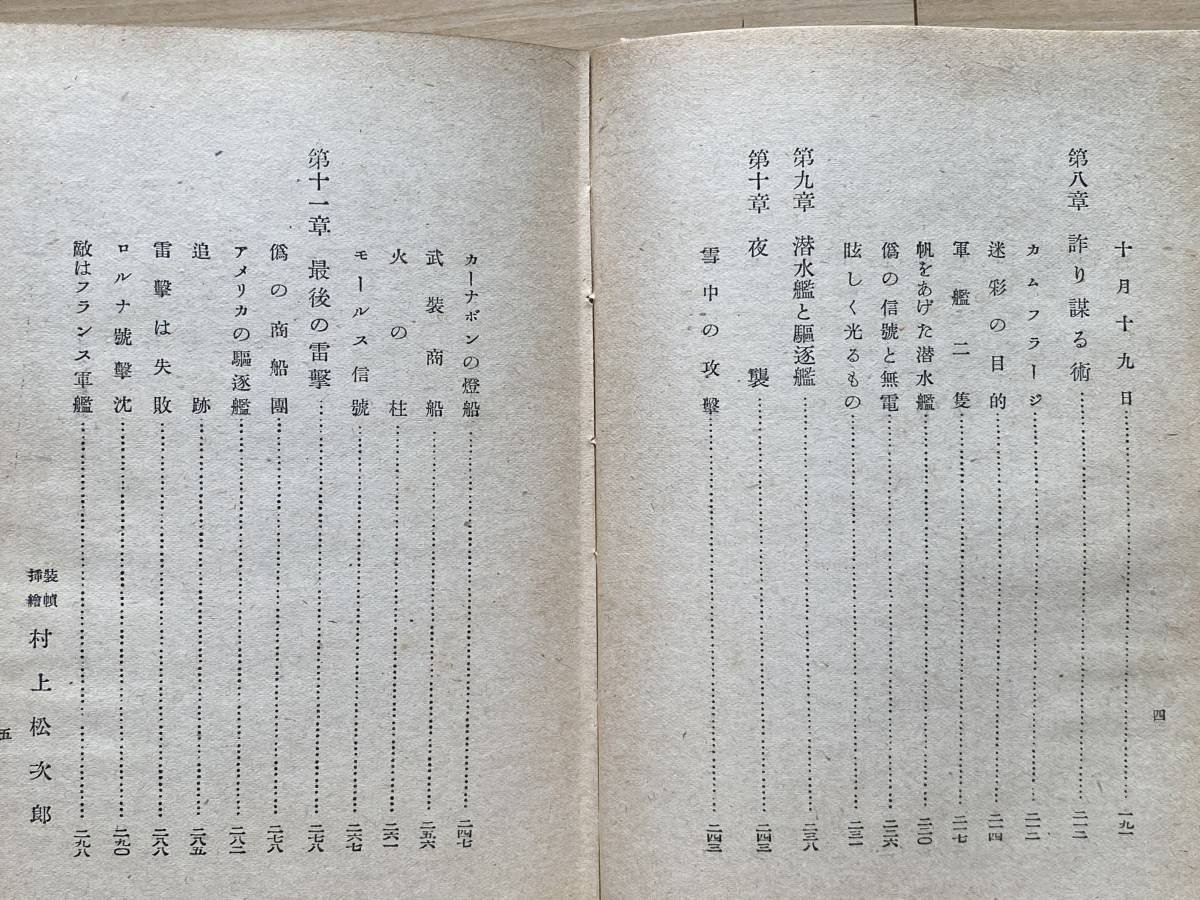 十月十九日……一九一
第八章 詐り謀る術……二一二
カムフラージ……二一二
迷彩の目的……二一四
軍艦二隻……二一七
帆をあげた潜水艦……二二〇
僞の信號と無電……二二六
眩しく光るもの……二三一
第九章 潜水艦と驅逐艦……二三八
第十章 夜襲……二四三
雪中の攻擊……二四三
四
カーナボンの燈船……二四七
武裝商船……二五六
火の柱……二六一
モールス信號……二六七
第十一章 最後の雷擊……二七八
僞の商船團……二七八
アメリカの驅逐艦……二八二
追跡……二八五
雷擊は失敗……二八八
ロルナ號擊沈……二九〇
敵はフランス軍艦……二九八
裝幀
揷繪
村上松次郎
五